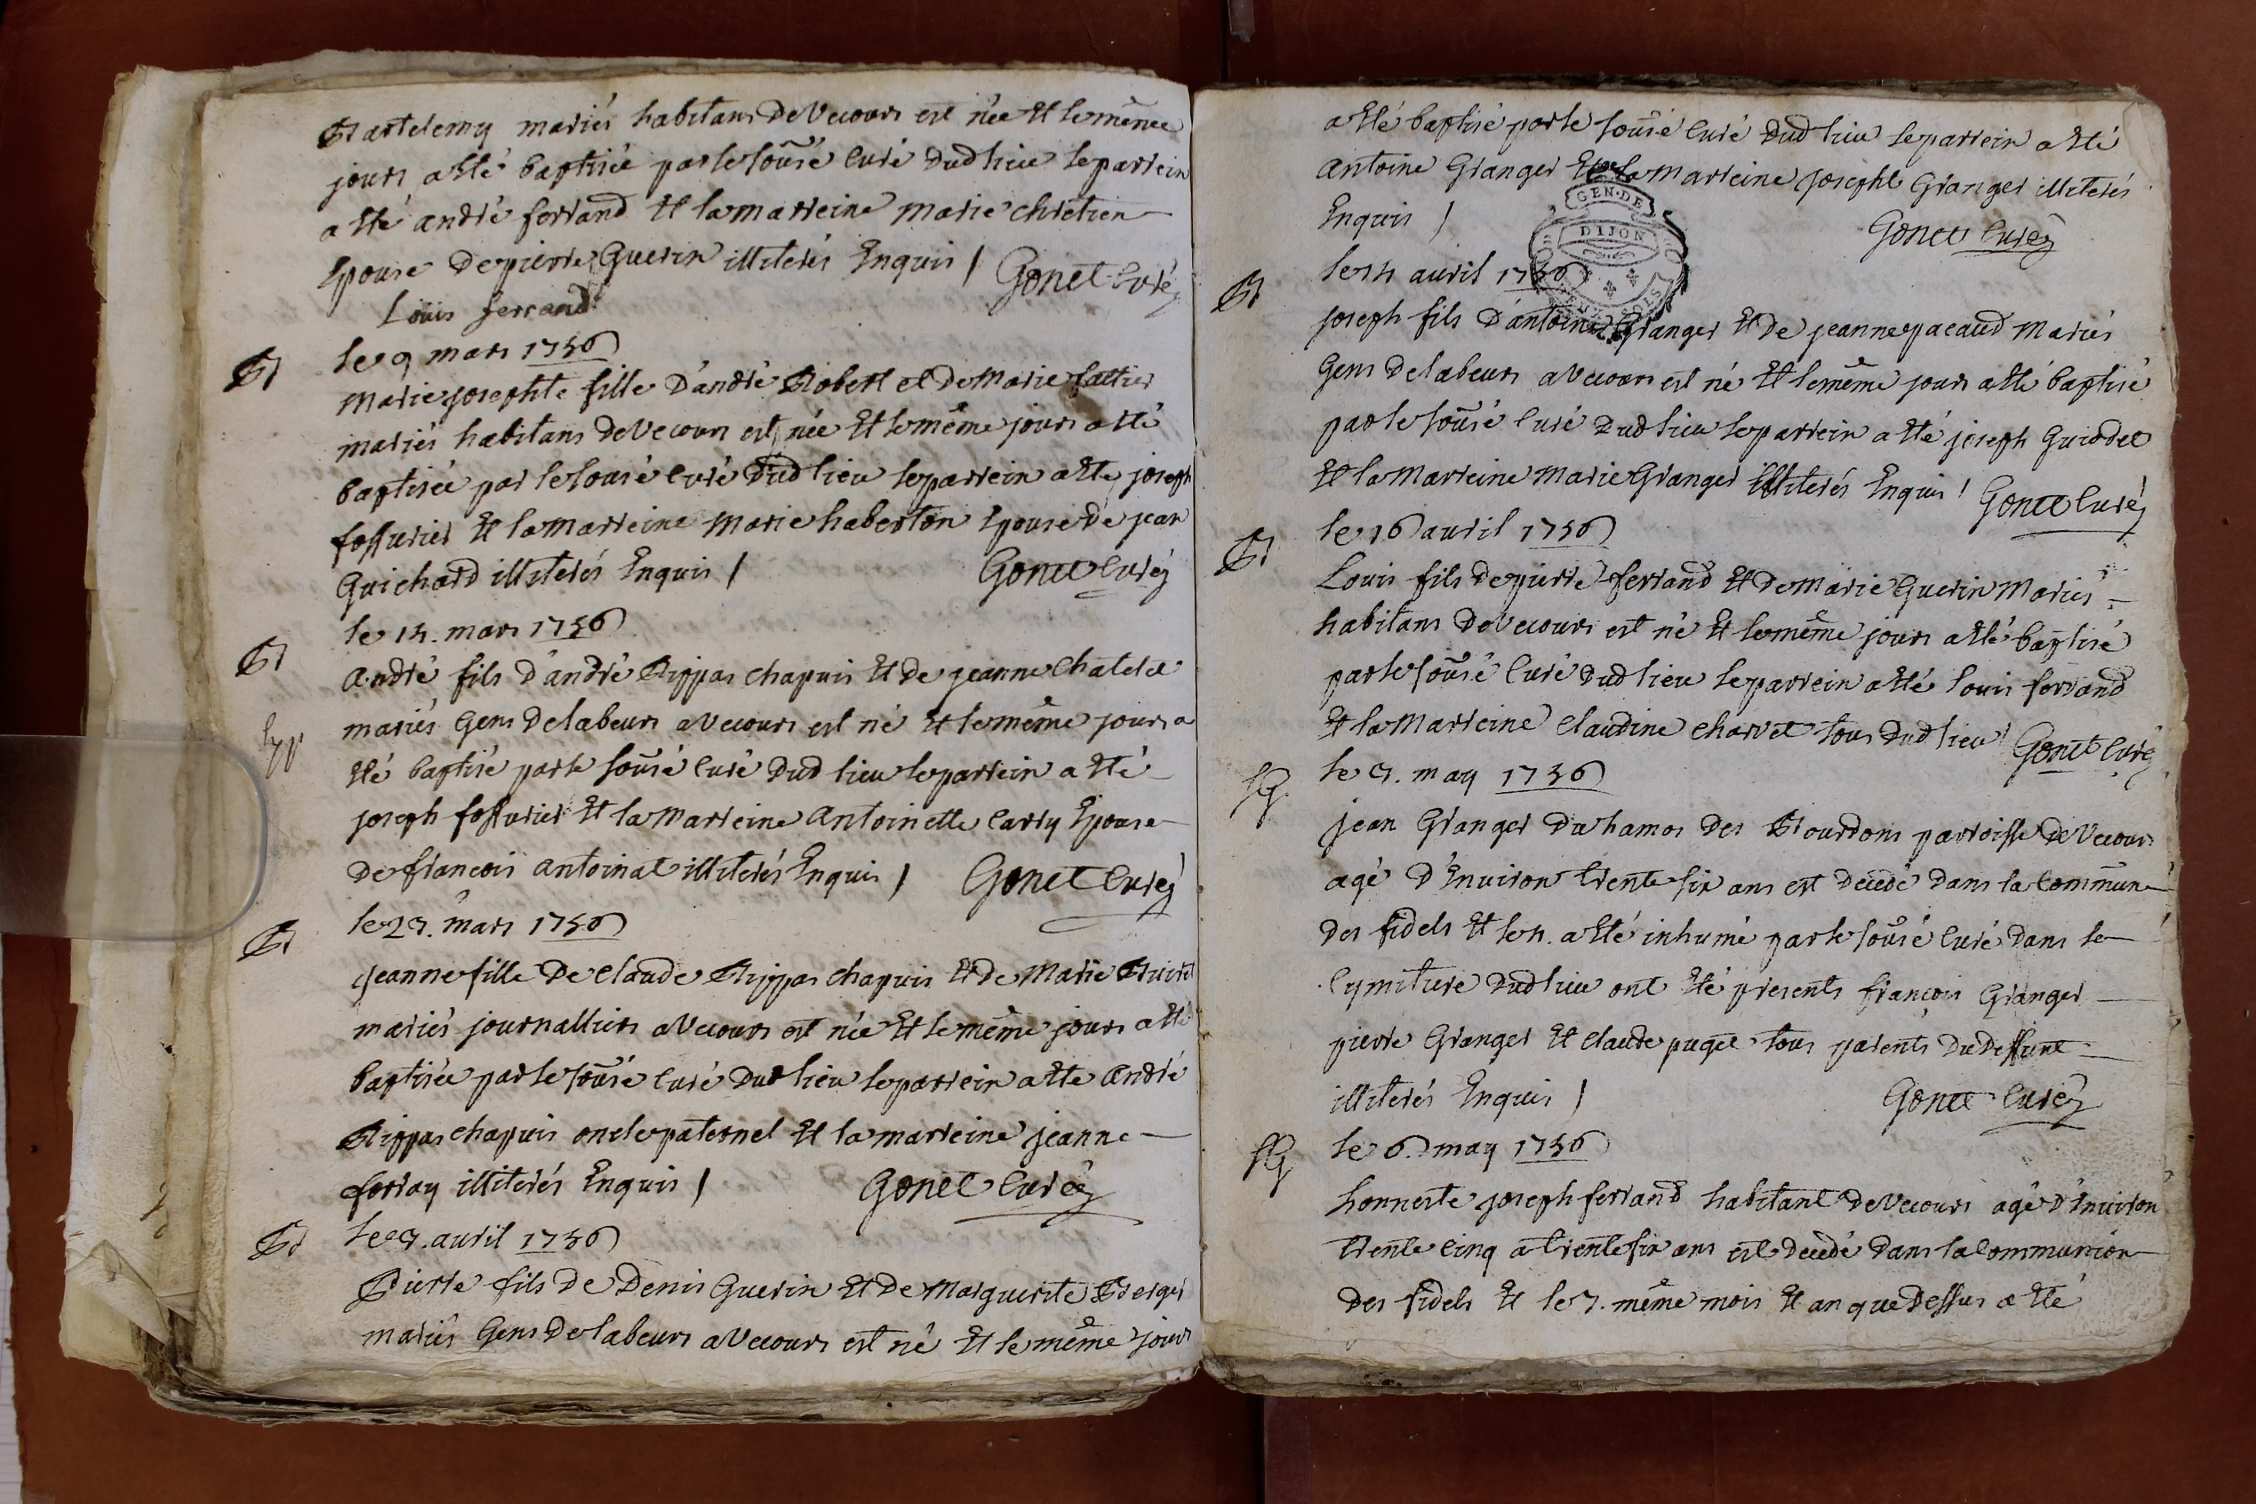 Bartelemy mariés habitans de Vecours est née et le même
jours a été baptisée par le sousé curé dud lieu le parrein
a été andré ferrand et la marreine marie chrétien
Epouse de pierre Guerin illiterés Enquis / Gonet curé
Loüis ferrand
Bt le 9 mars 1756
marie josephte fille d'andré Robert et de Marie
mariés habitans de Vecours est née et le même jours a été
baptisée par le sousé curé dud lieu le parrein a été joseph
fossurier et la marreine marie haberton Epouse de jean
Guichard illiterés Enquis / Gonet curé
le 14. mars 1756
Bt andré fils d'andré Rippas chapuis et de jeanne Chatelet
mariés Gens de labeurs a Vecours est né et le même jours a
été baptisé par le sousé curé dud lieu le parrein a été
joseph fossurier et la marreine antoinette Carry Epouse
de françois antoinat illiterés Enquis / Gonet curé
le 27. mars 1756
Bt jeanne fille de Claude Rippas chapuis et de Marie
mariés journalliers a Vecours est née et le même jours a été
baptisée par le sousé curé dud lieu le parrein a été andré
Rippas chapuis oncle paternel et la marreine jeanne
ferray illiterés Enquis / Gonet curé
Bt le 7. avril 1756
Pierre fils de Denis Guerin et de Marguerite Berger
mariés Gens de labeurs a Vecours est né et le même jours
a été baptisé par le sousé curé dud lieu le parrein a été
antoine Granger et la marreine josephte Granger illiterés
Enquis / Gonet curé
GEN. DE
DIJON
le 14 avril 1756
Bt joseph fils d'antoine Granger et de jeanne pacaud mariés
Gens de labeurs a Vecours est né et le même jours a été baptisé
par le sousé curé dud lieu le parrein a été joseph Guiodet
et la marreine marie Granger illiterés Enquis / Gonet curé
Bt le 16 avril 1756
Louis fils de pierre ferrand et de Marie Guerin mariés
habitans de Vecours est né et le même jours a été baptisé
par le sousé curé dud lieu le parrein a été louis ferrand
et la marreine claudine charvet tous dud lieu / Gonet curé
SG le 3. may 1756
jean Granger du hamos des Bourdons parroisse de Vecours
agé d'Environ trente six ans est decedé dans la commun
des fidels et le 4. a été inhumé par le sousé curé dans le
cymiture dud lieu ont été presents françois Granger
pierre Granger et claude puget tous parents du deffunt
illiterés Enquis / Gonet curé
SG le 6. may 1756
honneste joseph ferrand habitant de Vecours agé d'Environ
trente cinq a trente six ans est decedé dans la communion
des fidels et le 7. même mois et an que dessus a été